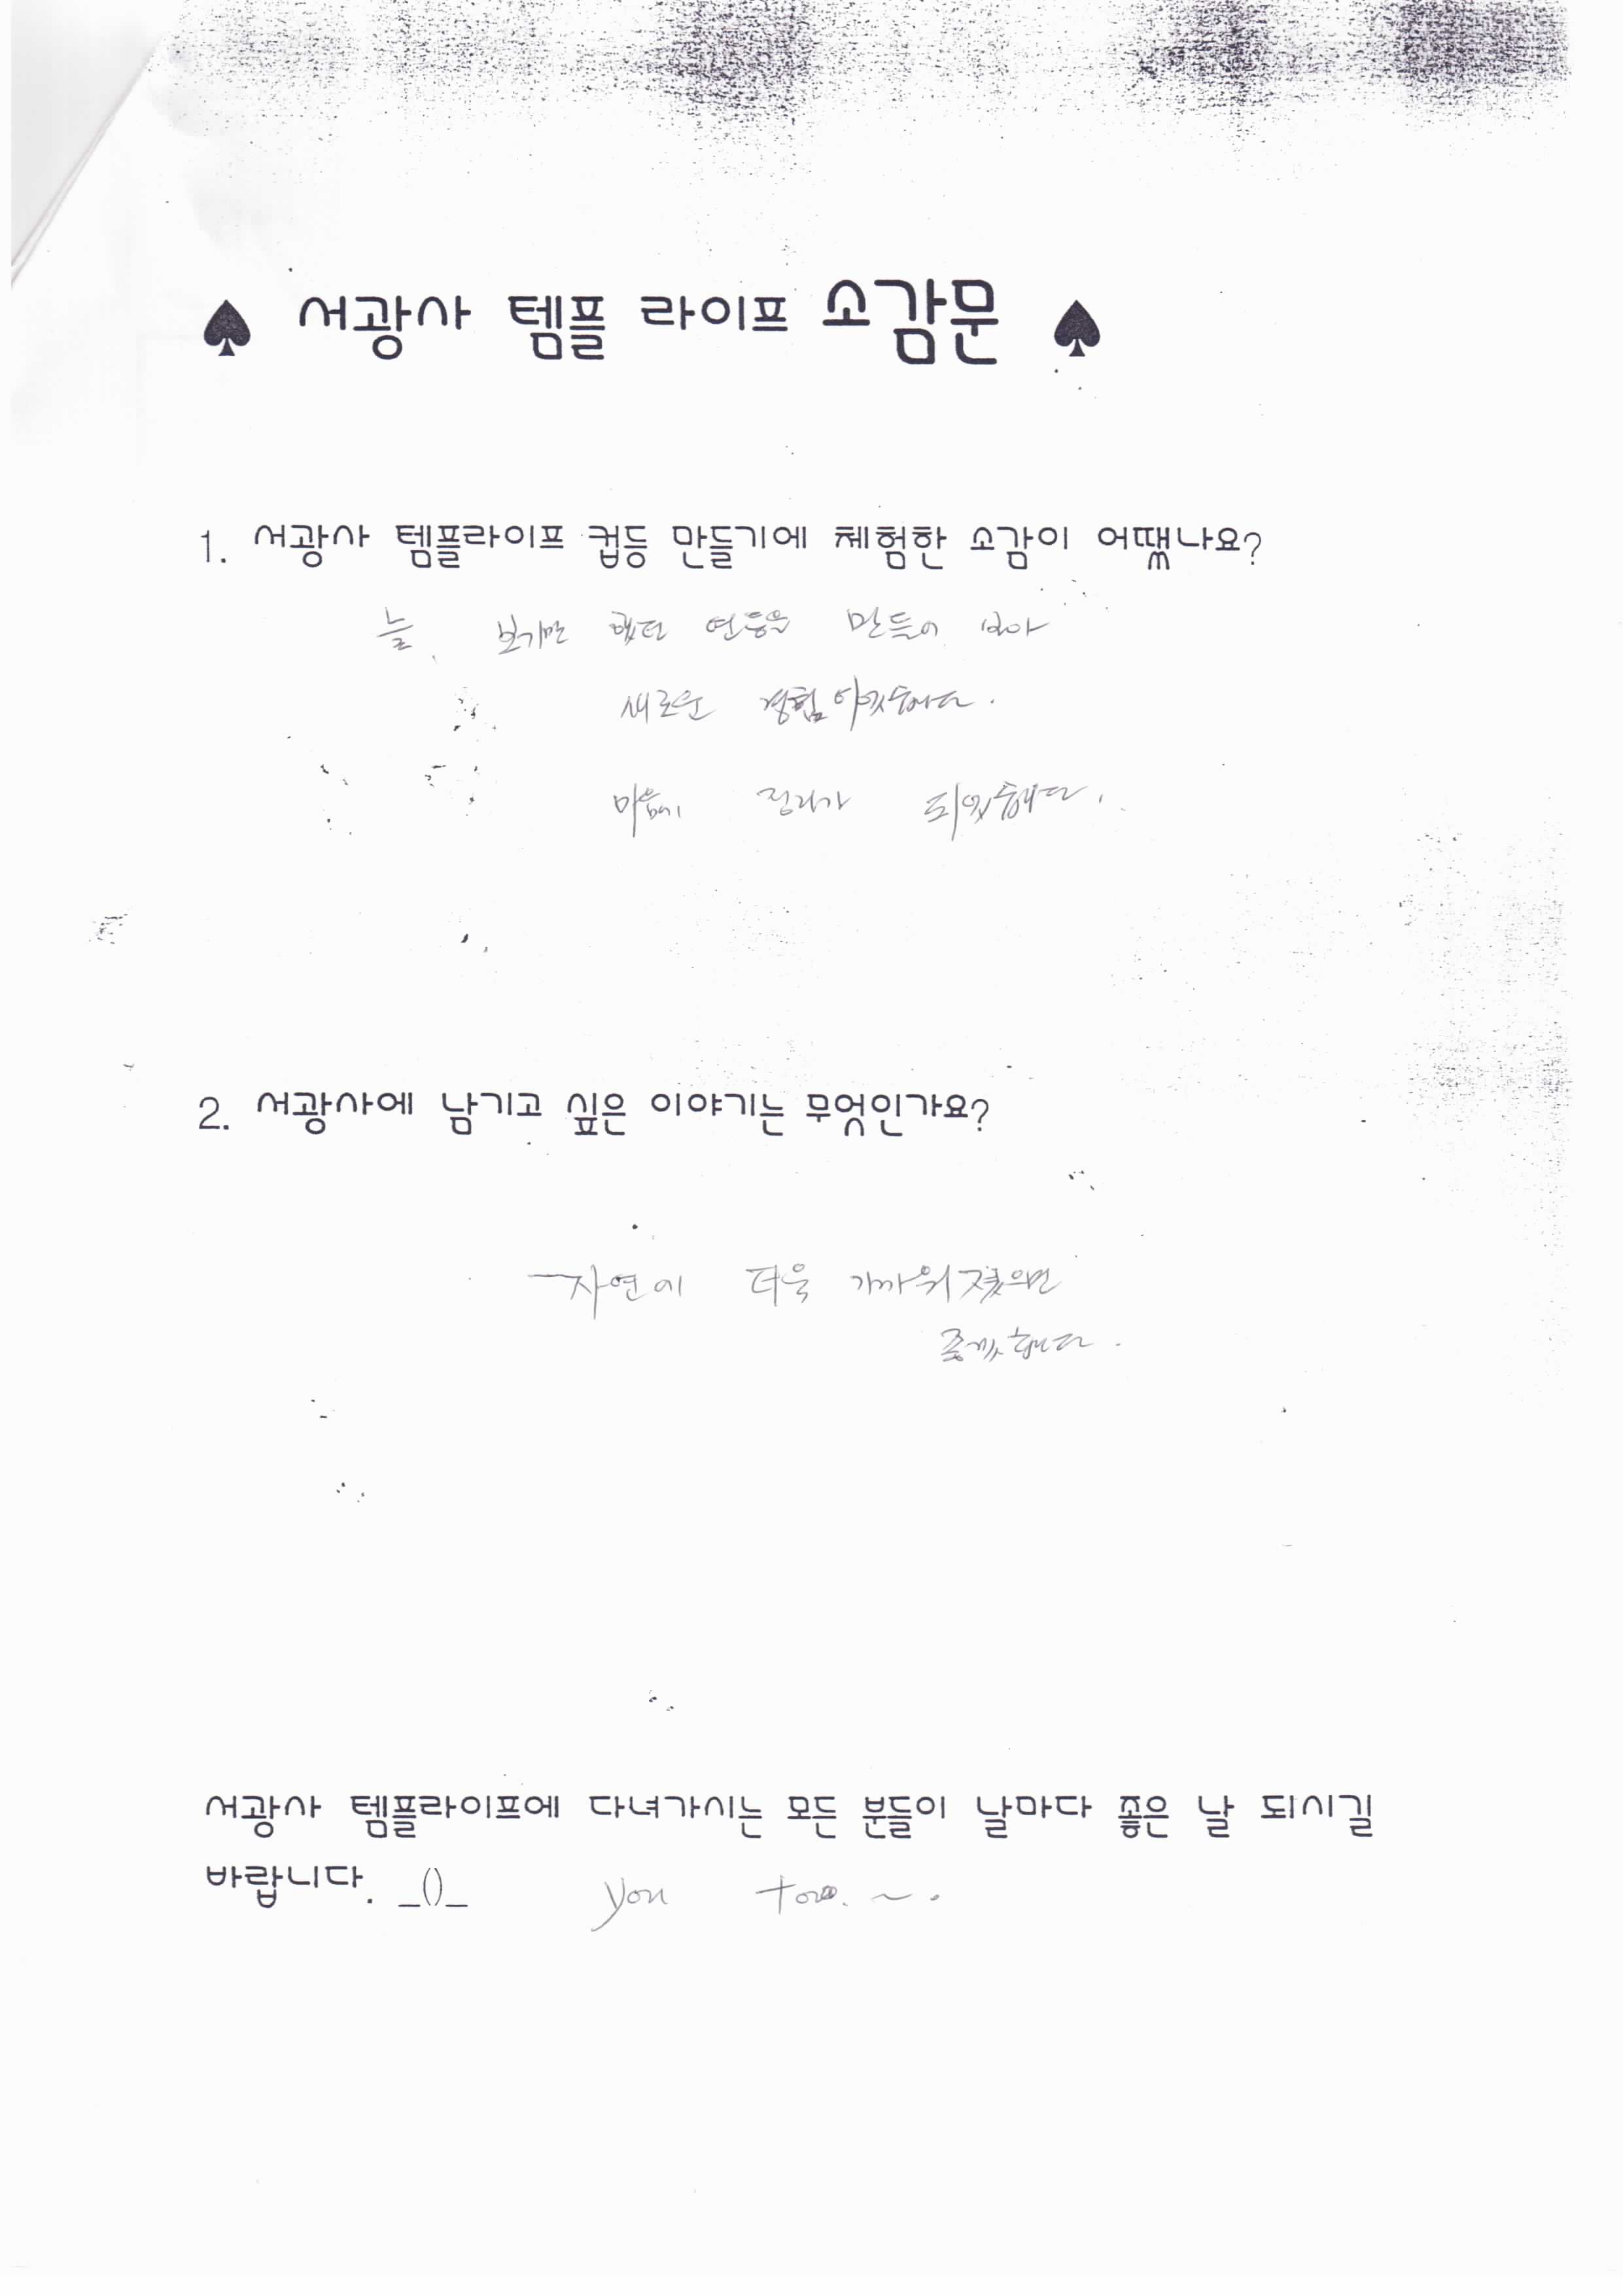 ♠ 서광사 템플 라이프 소감문 ♠
1. 서광사 템플라이프 컵등 만들기에 체험한 소감이 어땠나요?
늘 보기만 했던 연등을 만들어 보아
새로운 경험이었습니다.
마음에 정리가 되었습니다.
2. 서광사에 남기고 싶은 이야기는 무엇인가요?
자연에 더욱 가까워졌으면
좋겠습니다.
서광사 템플라이프에 다녀가시는 모든 분들이 날마다 좋은 날 되시길
바랍니다. _()_ you too. ~.